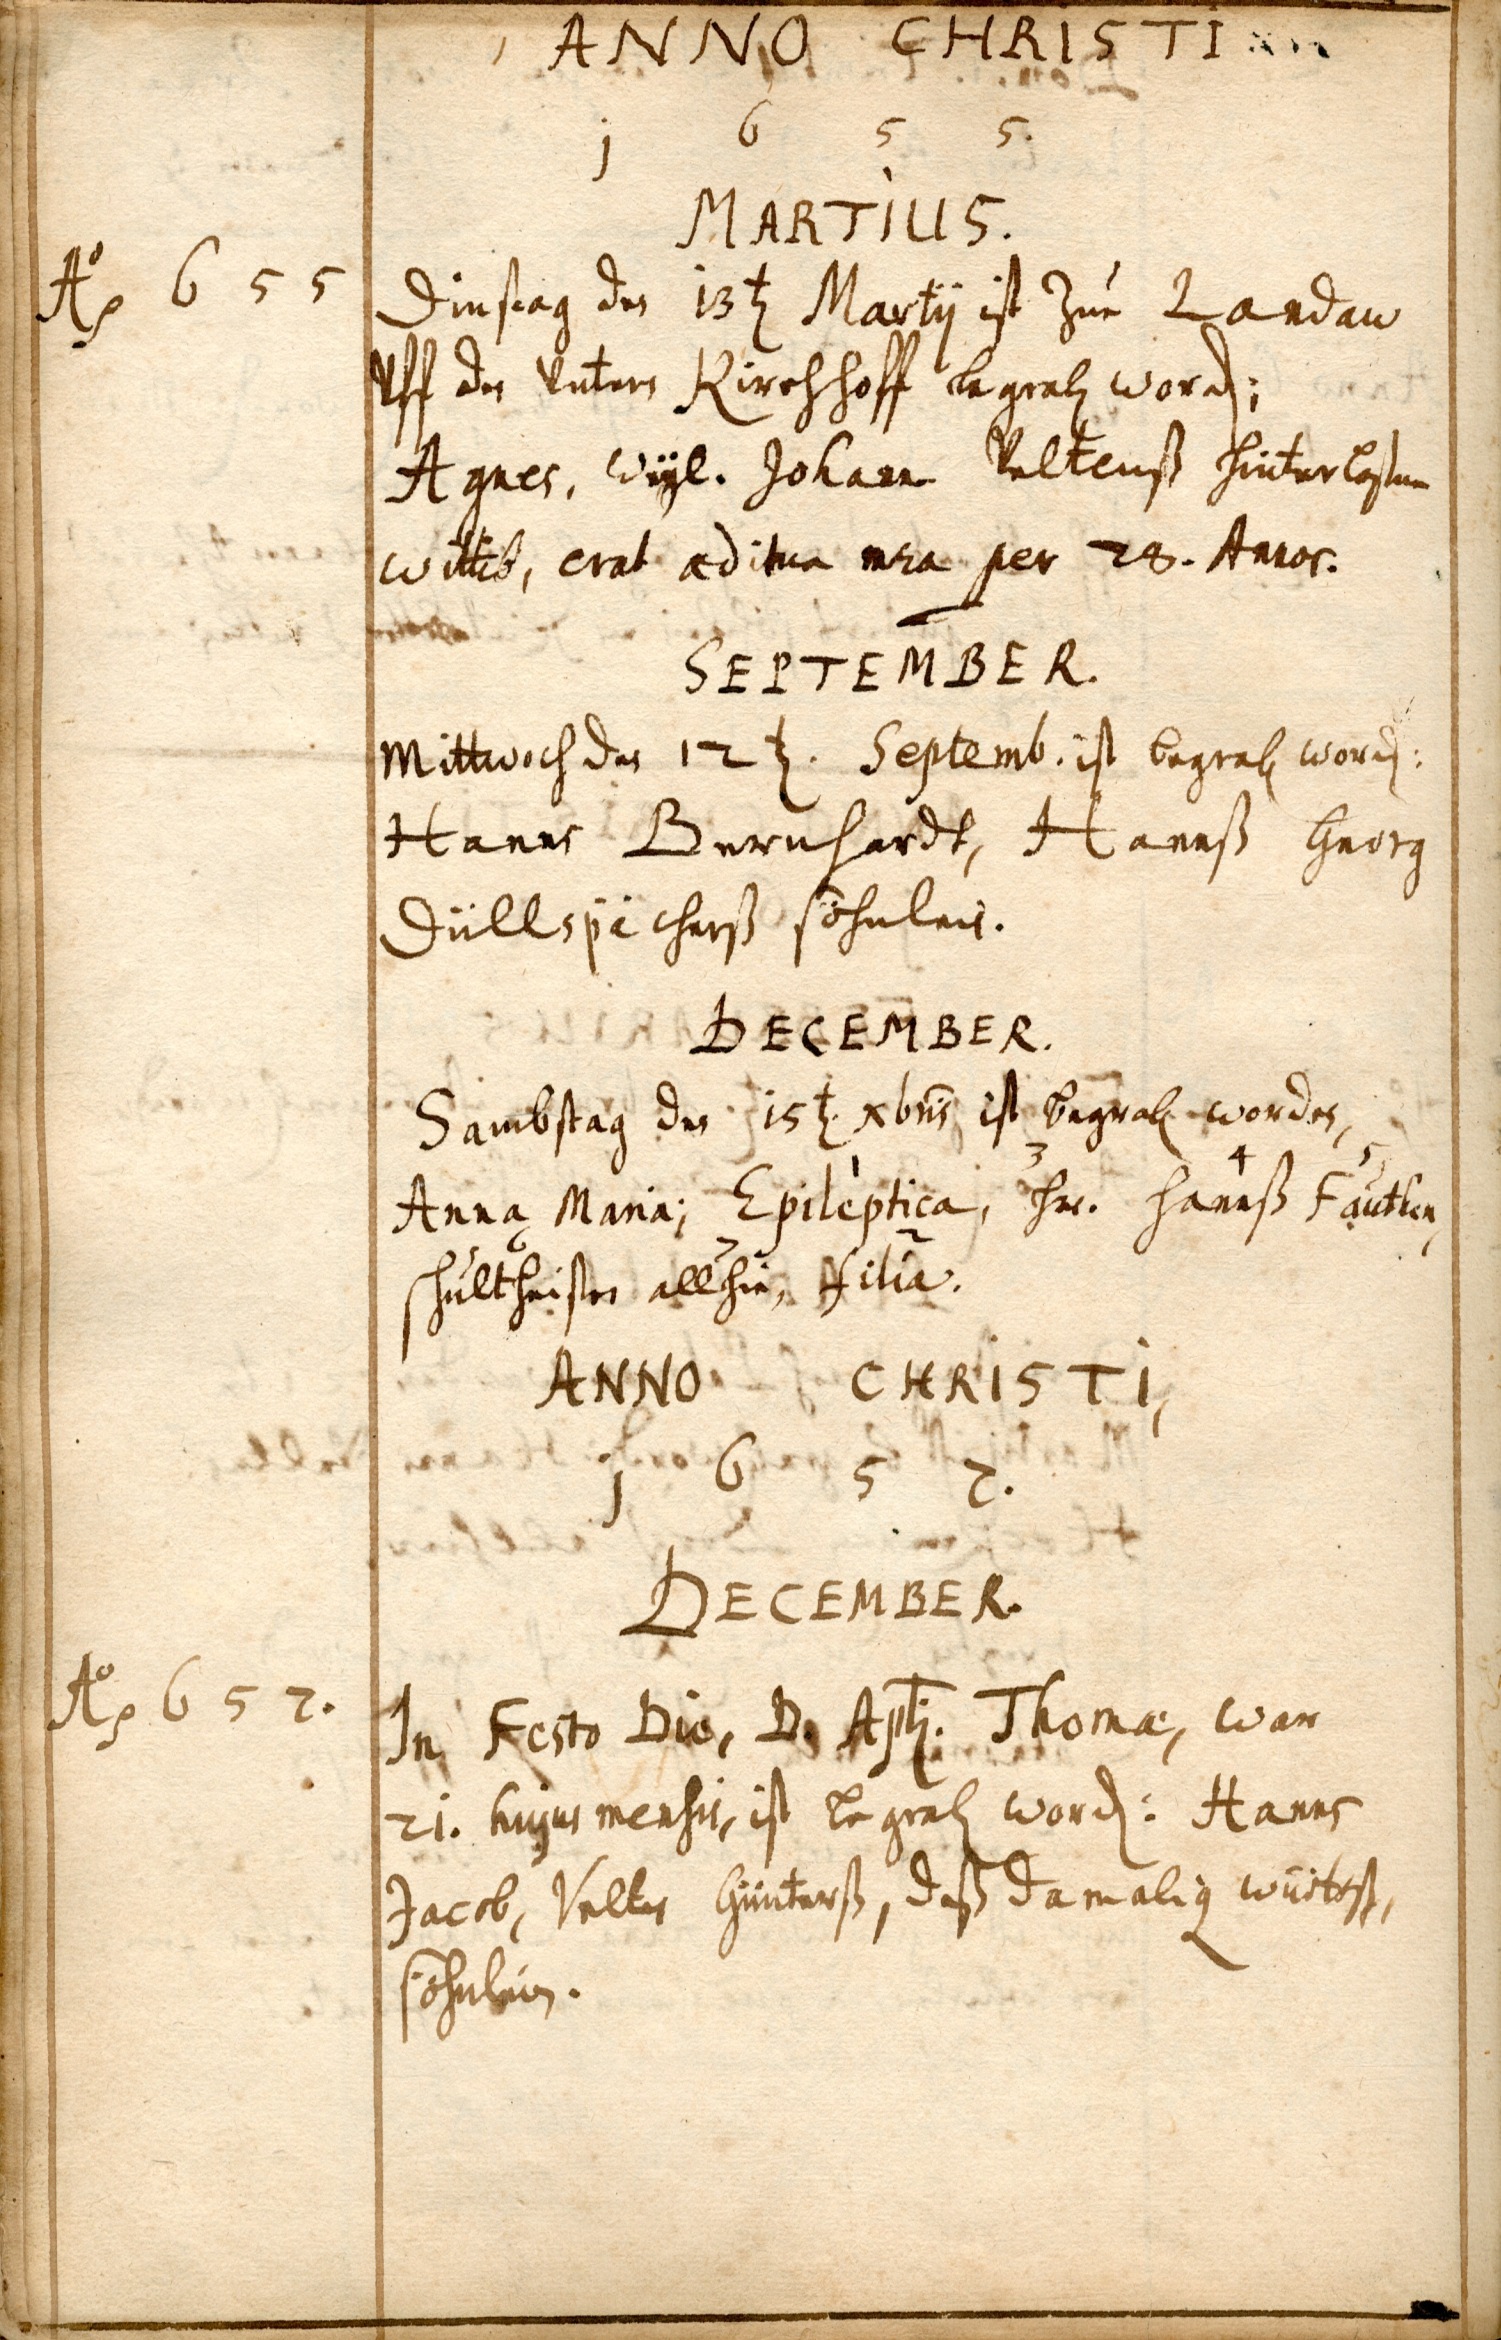 ANNO CHRISTI
j 6 5 5.
MARTIUS.
Aº 655 Dinstag den 13t Martij ist zue Landaw
Uff den Untern Kirchhoff begrab word;
Agnes, wyl. Johann Veltenß hinterlaßene
wittib, erat æditua mea per 28. Annos.
SEPTEMBER.
Mittwoch den 12t. Septemb. ist begrab word:
Hanns Bernhardt, Hannß Georg
Düllspecherß söhnlein.
DECEMBER.
Sambstag den 15t. xbris ist begrab worden,
3 4 5
Anna Maria; Epileptica, hr. Hannß Fauthen,
6 7 2
schultheisen allhie, Filia.
ANNO CHRISTI,
j 6 5 7.
DECEMBER.
Aº 657. In Festo Die, D. Apli. Thomæ, war
21. hujus mensis, ist begrab word: Hanns
Jacob, Velten Günterß, deß damalig würtß,
söhnlein.